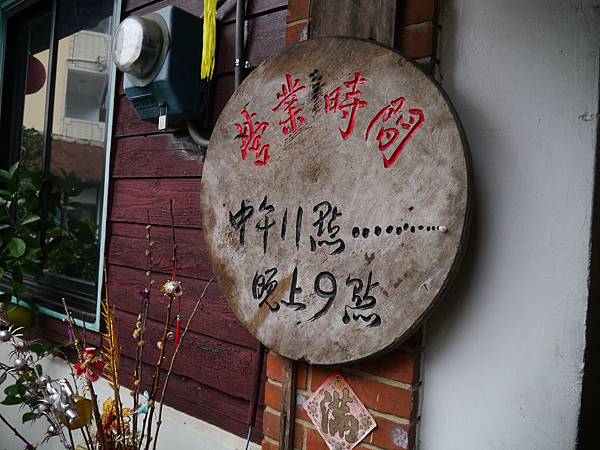 營業時間
中午11點............
晚上9點
滿